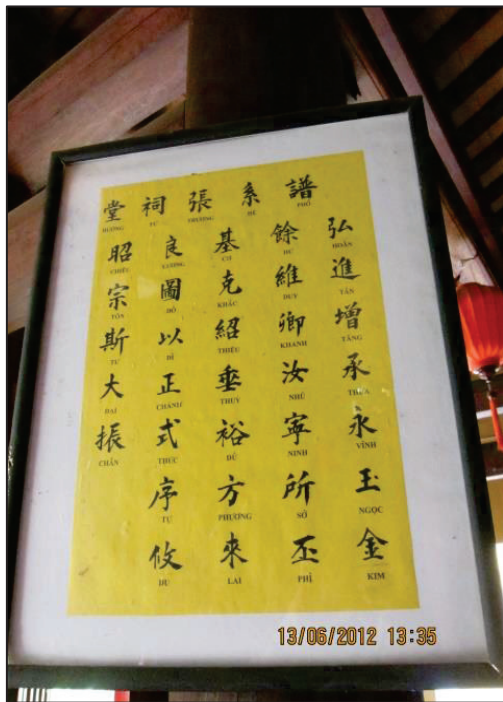 堂 祠 張 系 譜
TỪ TRƯƠNG HỆ PHỔ
昭 良 基 餘 弘
CHIÊU HOÀN
宗 圖 克 維 進
TÔN ĐỒ KHẮC DUY TẤN
斯 以 紹 卿 增
TƯ DĨ THIỆU KHANH TĂNG
大 正 垂 汝 承
ĐẠI CHÁNH THUỲ NHỮ THỪA
振 式 裕 寧 永
CHẤN THỨC DŨ NINH VĨNH
序 方 所 玉
TỰ PHƯƠNG SỞ NGỌC
攸 來 丕 金
DU LAI PHỈ KIM
13/06/2012 13:35